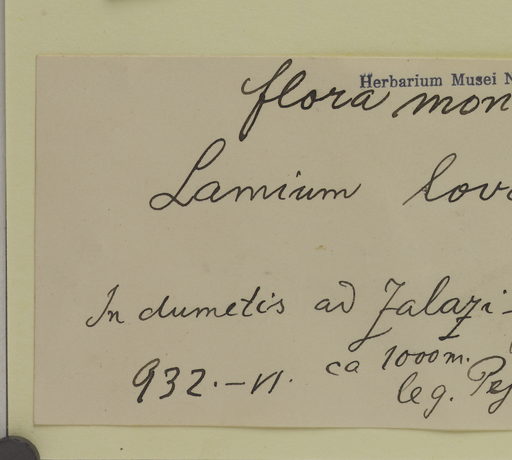 Herbarium Musei N
flora mon
Lamium lov
In dumetis ad Jalazi-
ca 1000m.
932.-VI.
leg. Pej